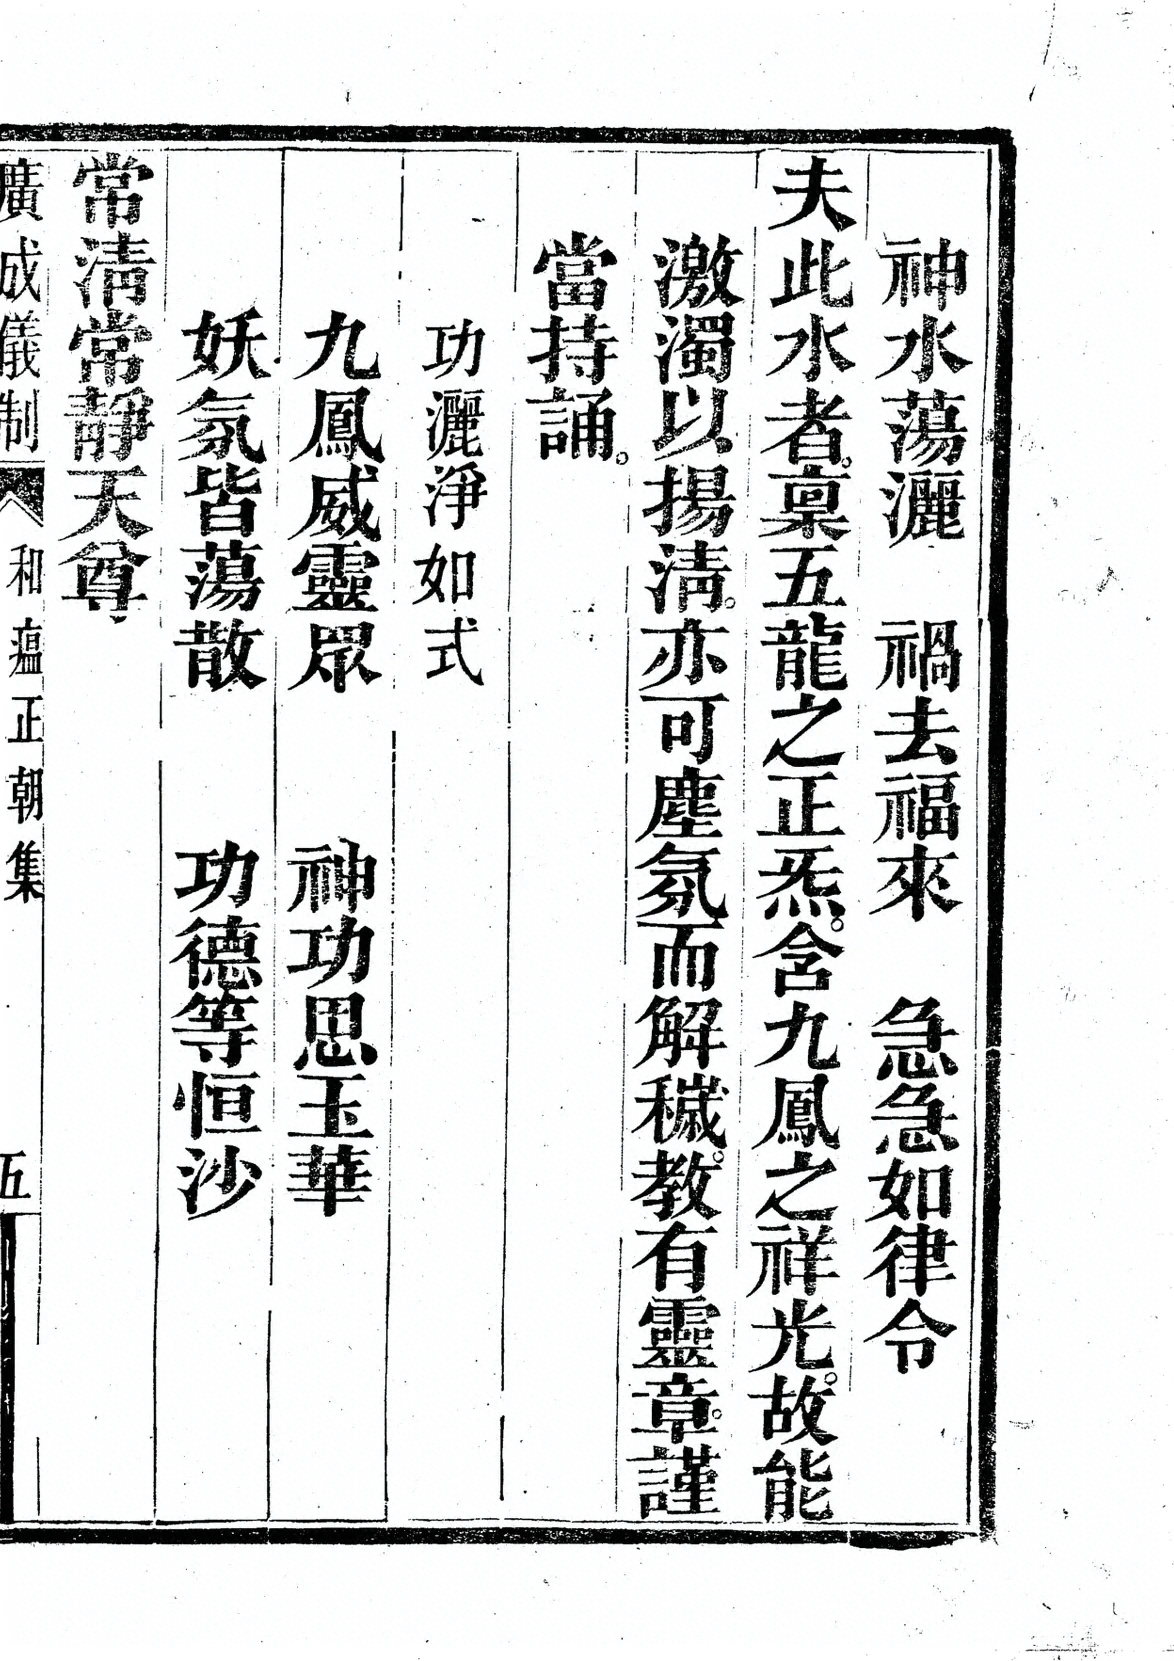 神水蕩灑　禍去福來　急急如律令
夫此水者。稟五龍之正炁。含九鳳之祥光。故能
激濁以揚清。亦可塵氛而解穢。教有靈章。謹
當持誦。
功灑淨如式
九鳳威靈眾　神功思玉華
妖氛皆蕩散　功德等恒沙
常清常靜天尊
廣成儀制　和瘟正朝集　五